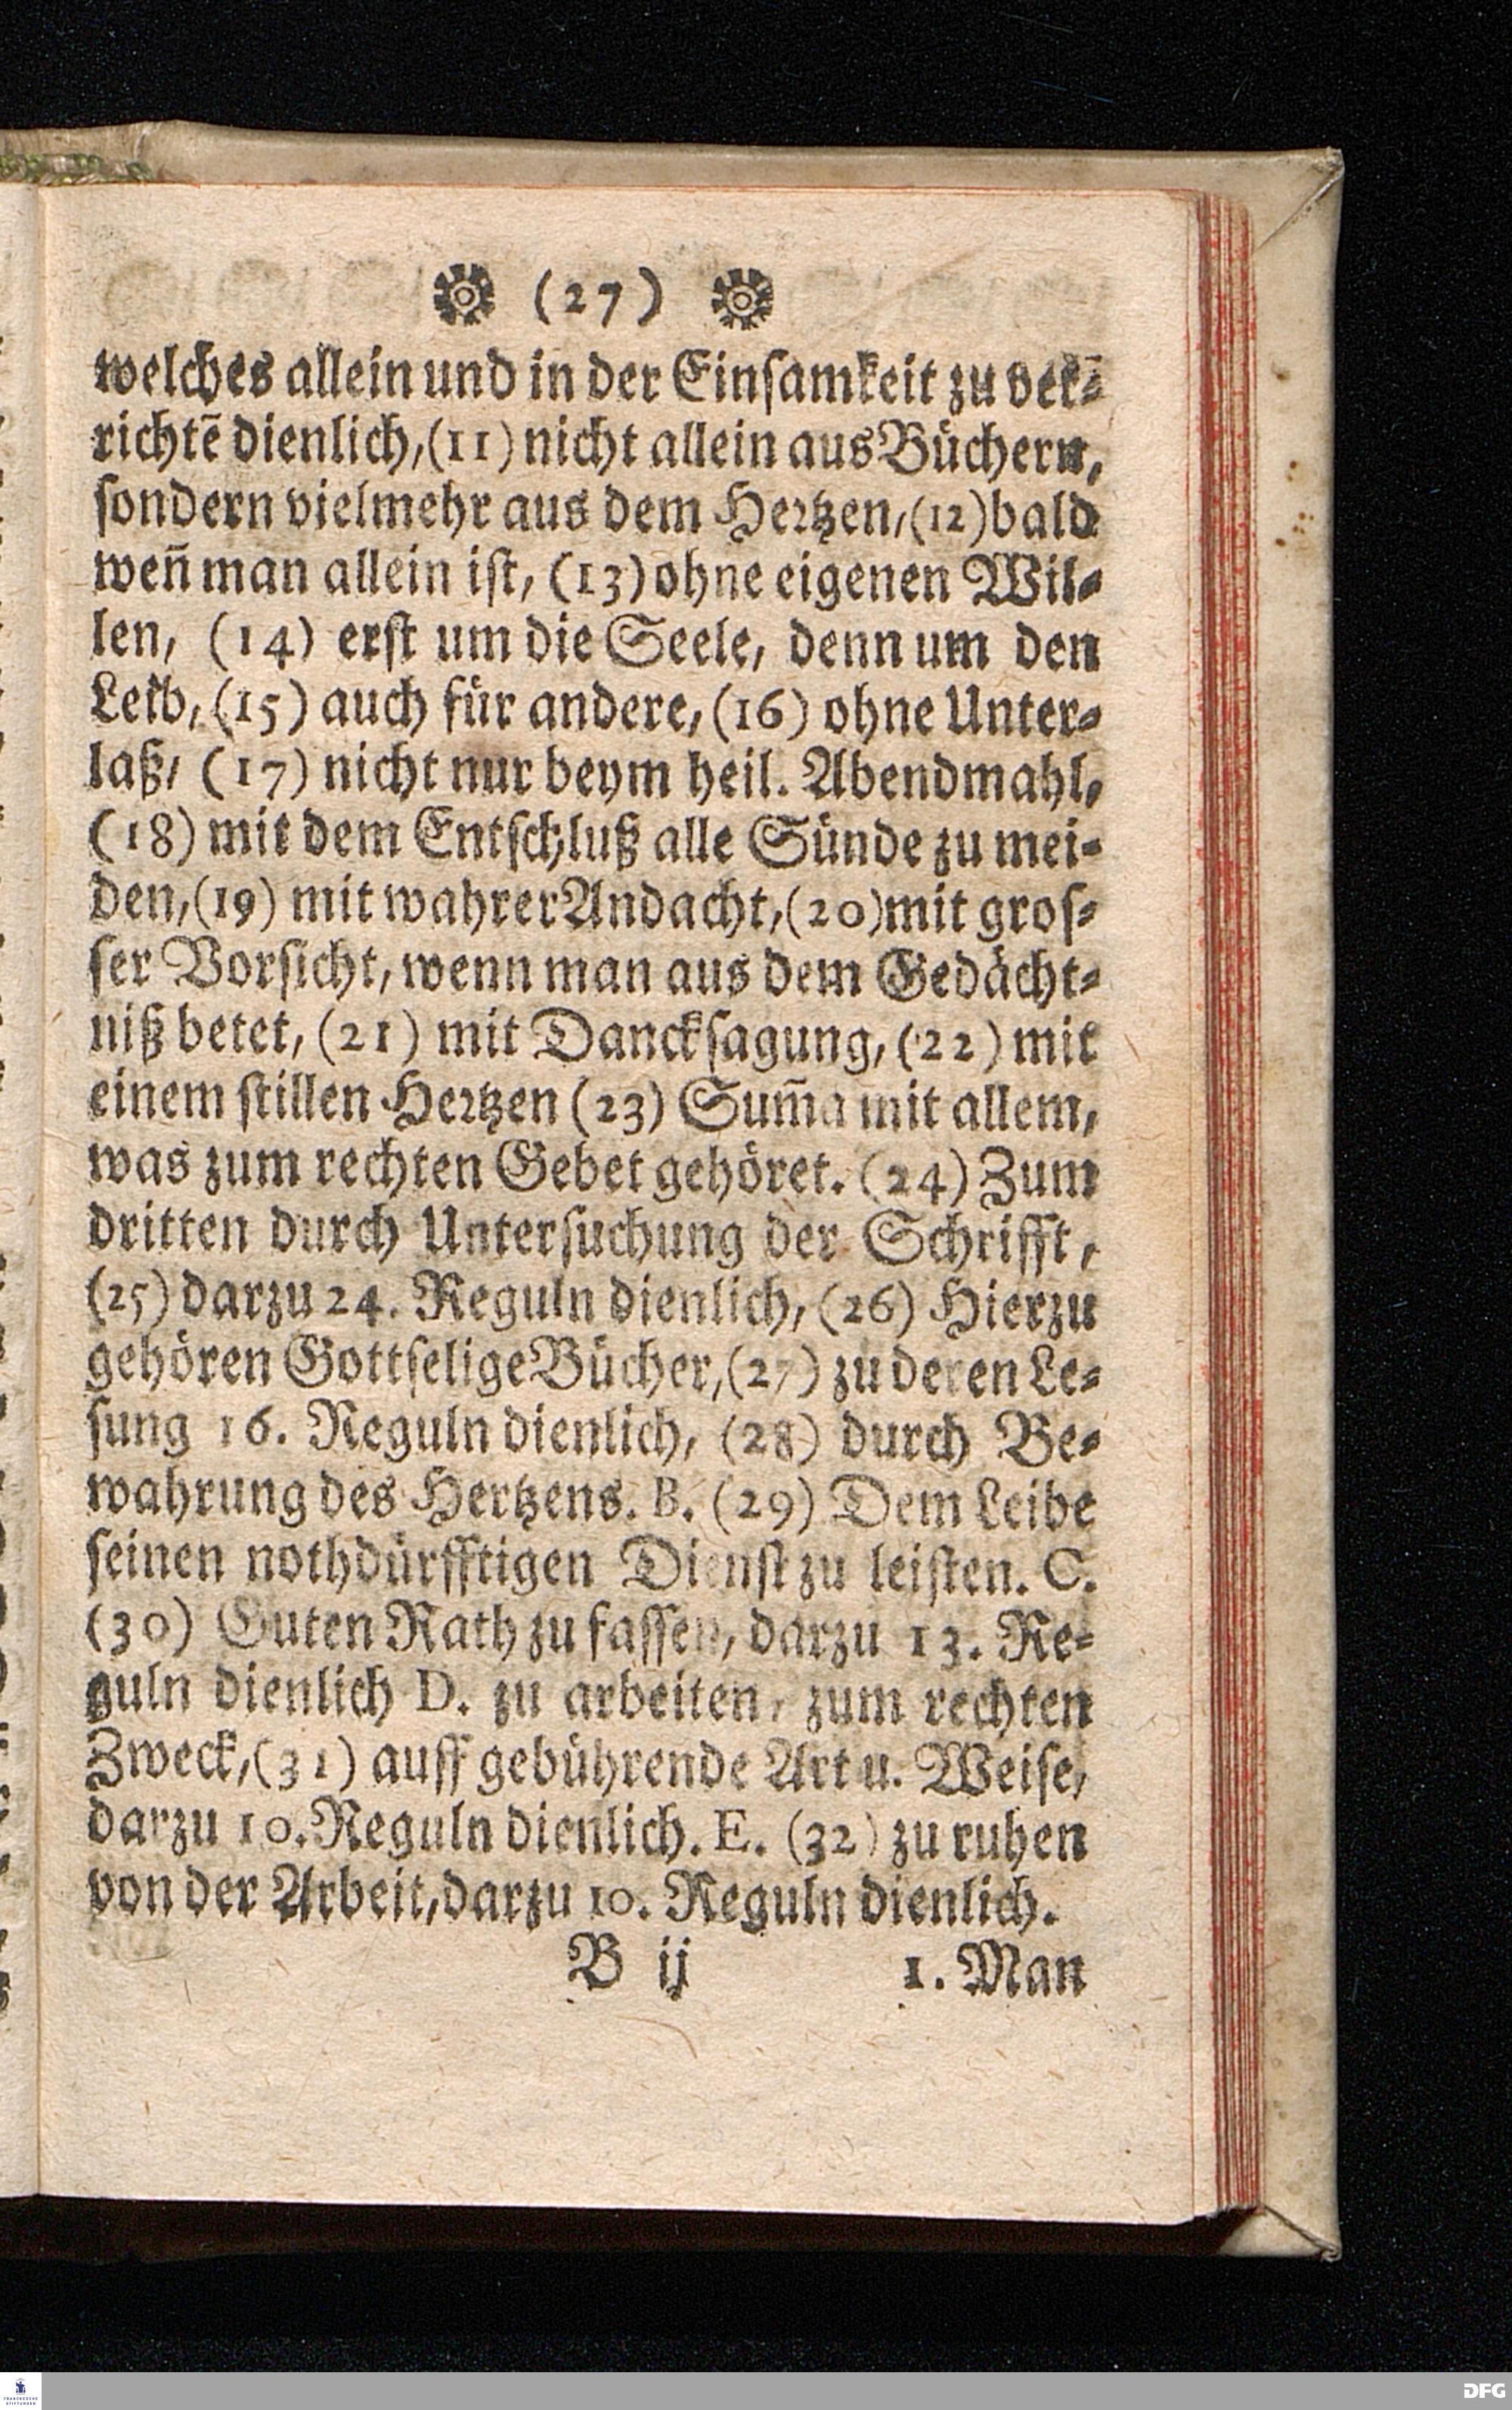 (27)
welches allein und in der Einsamkeit zu ver-
richtē dienlich, (11) nicht allein aus Büchern,
sondern vielmehr aus dem Hertzen, (12) bald
weñ man allein ist, (13) ohne eigenen Wil-
len, (14) erst um die Seele, denn um den
Leib, (15) auch für andere, (16) ohne Unter-
laß, (17) nicht nur beym heil. Abendmahl,
(18) mit dem Entschluß alle Sünde zu mei-
den, (19) mit wahrer Andacht, (20) mit gros-
ser Vorsicht, wenn man aus dem Gedächt-
niß betet, (21) mit Dancksagung, (22) mit
einem stillen Hertzen (23) Sum̃a mit allem,
was zum rechten Gebet gehöret. (24) Zum
dritten durch Untersuchung der Schrifft,
(25) darzu 24. Reguln dienlich, (26) Hierzu
gehören Gottselige Bücher, (27) zu deren Le-
sung 16. Reguln dienlich, (28) durch Be-
wahrung des Hertzens. B. (29) Dem Leibe
seinen nothdürfftigen Dienst zu leisten. C.
(30) Guten Rath zu fassen, darzu 13. Re-
guln dienlich D. zu arbeiten, zum rechten
Zweck, (31) auff gebührende Art u. Weise,
darzu 10. Reguln dienlich. E. (32) zu ruhen
von der Arbeit, darzu 10. Reguln dienlich.
B ij 1. Man
FRANCKESCHE
STIFTUNGEN
DFG